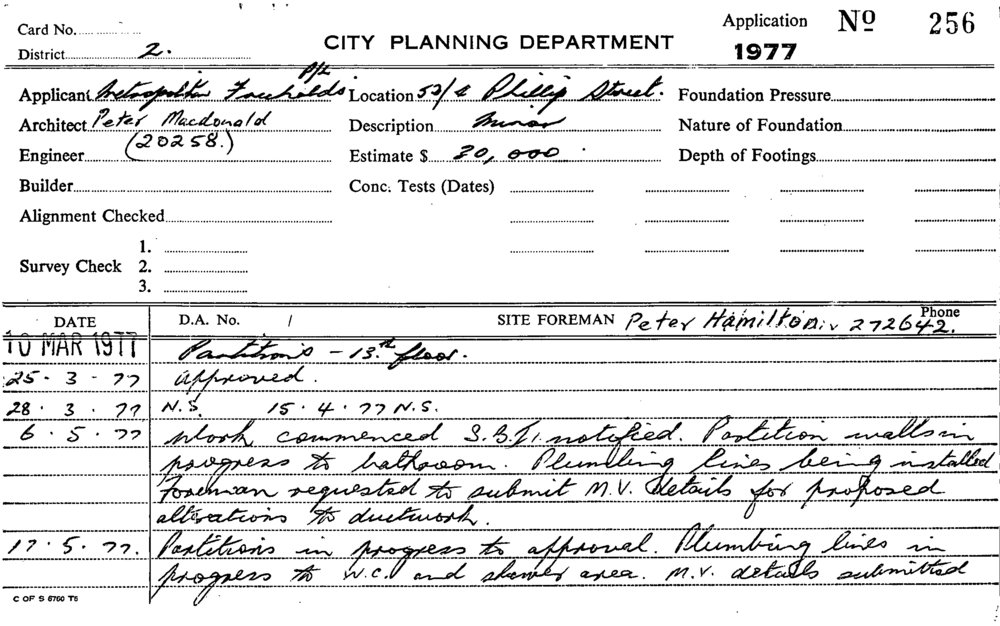 Card No.
Application Nº 256
District 2.
CITY PLANNING DEPARTMENT
1977
P/L
Applicant Metropolitan Freeholds Location 52/ Phillip Street. Foundation Pressure
Architect Peter Macdonald Description Minor Nature of Foundation
(20258.)
Engineer Estimate $ 20,000 Depth of Footings
Builder Conc. Tests (Dates)
Alignment Checked
1.
Survey Check 2.
3.
DATE D.A. No. / SITE FOREMAN Peter Hamilton Phone 272642.
10 MAR 1977 Partitions - 13th floor.
25 . 3 . 77 Approved.
28 . 3 . 77 N.S. 15 . 4 . 77 N.S.
6 . 5 . 77 Work commenced S.B.I. notified. Partition walls in
progress to bathroom. Plumbing lines being installed
Foreman requested to submit M.V. details for proposed
alterations to ductwork.
17 . 5 . 77. Partitions in progress to approval. Plumbing lines in
progress to W.C. and shower area. M.V. details submitted
C OF S 6760 T5